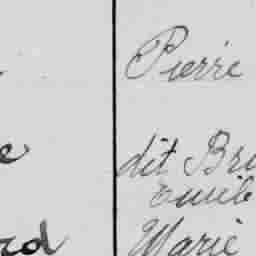 Pierre
e dit Bri
Emile
rd Marie